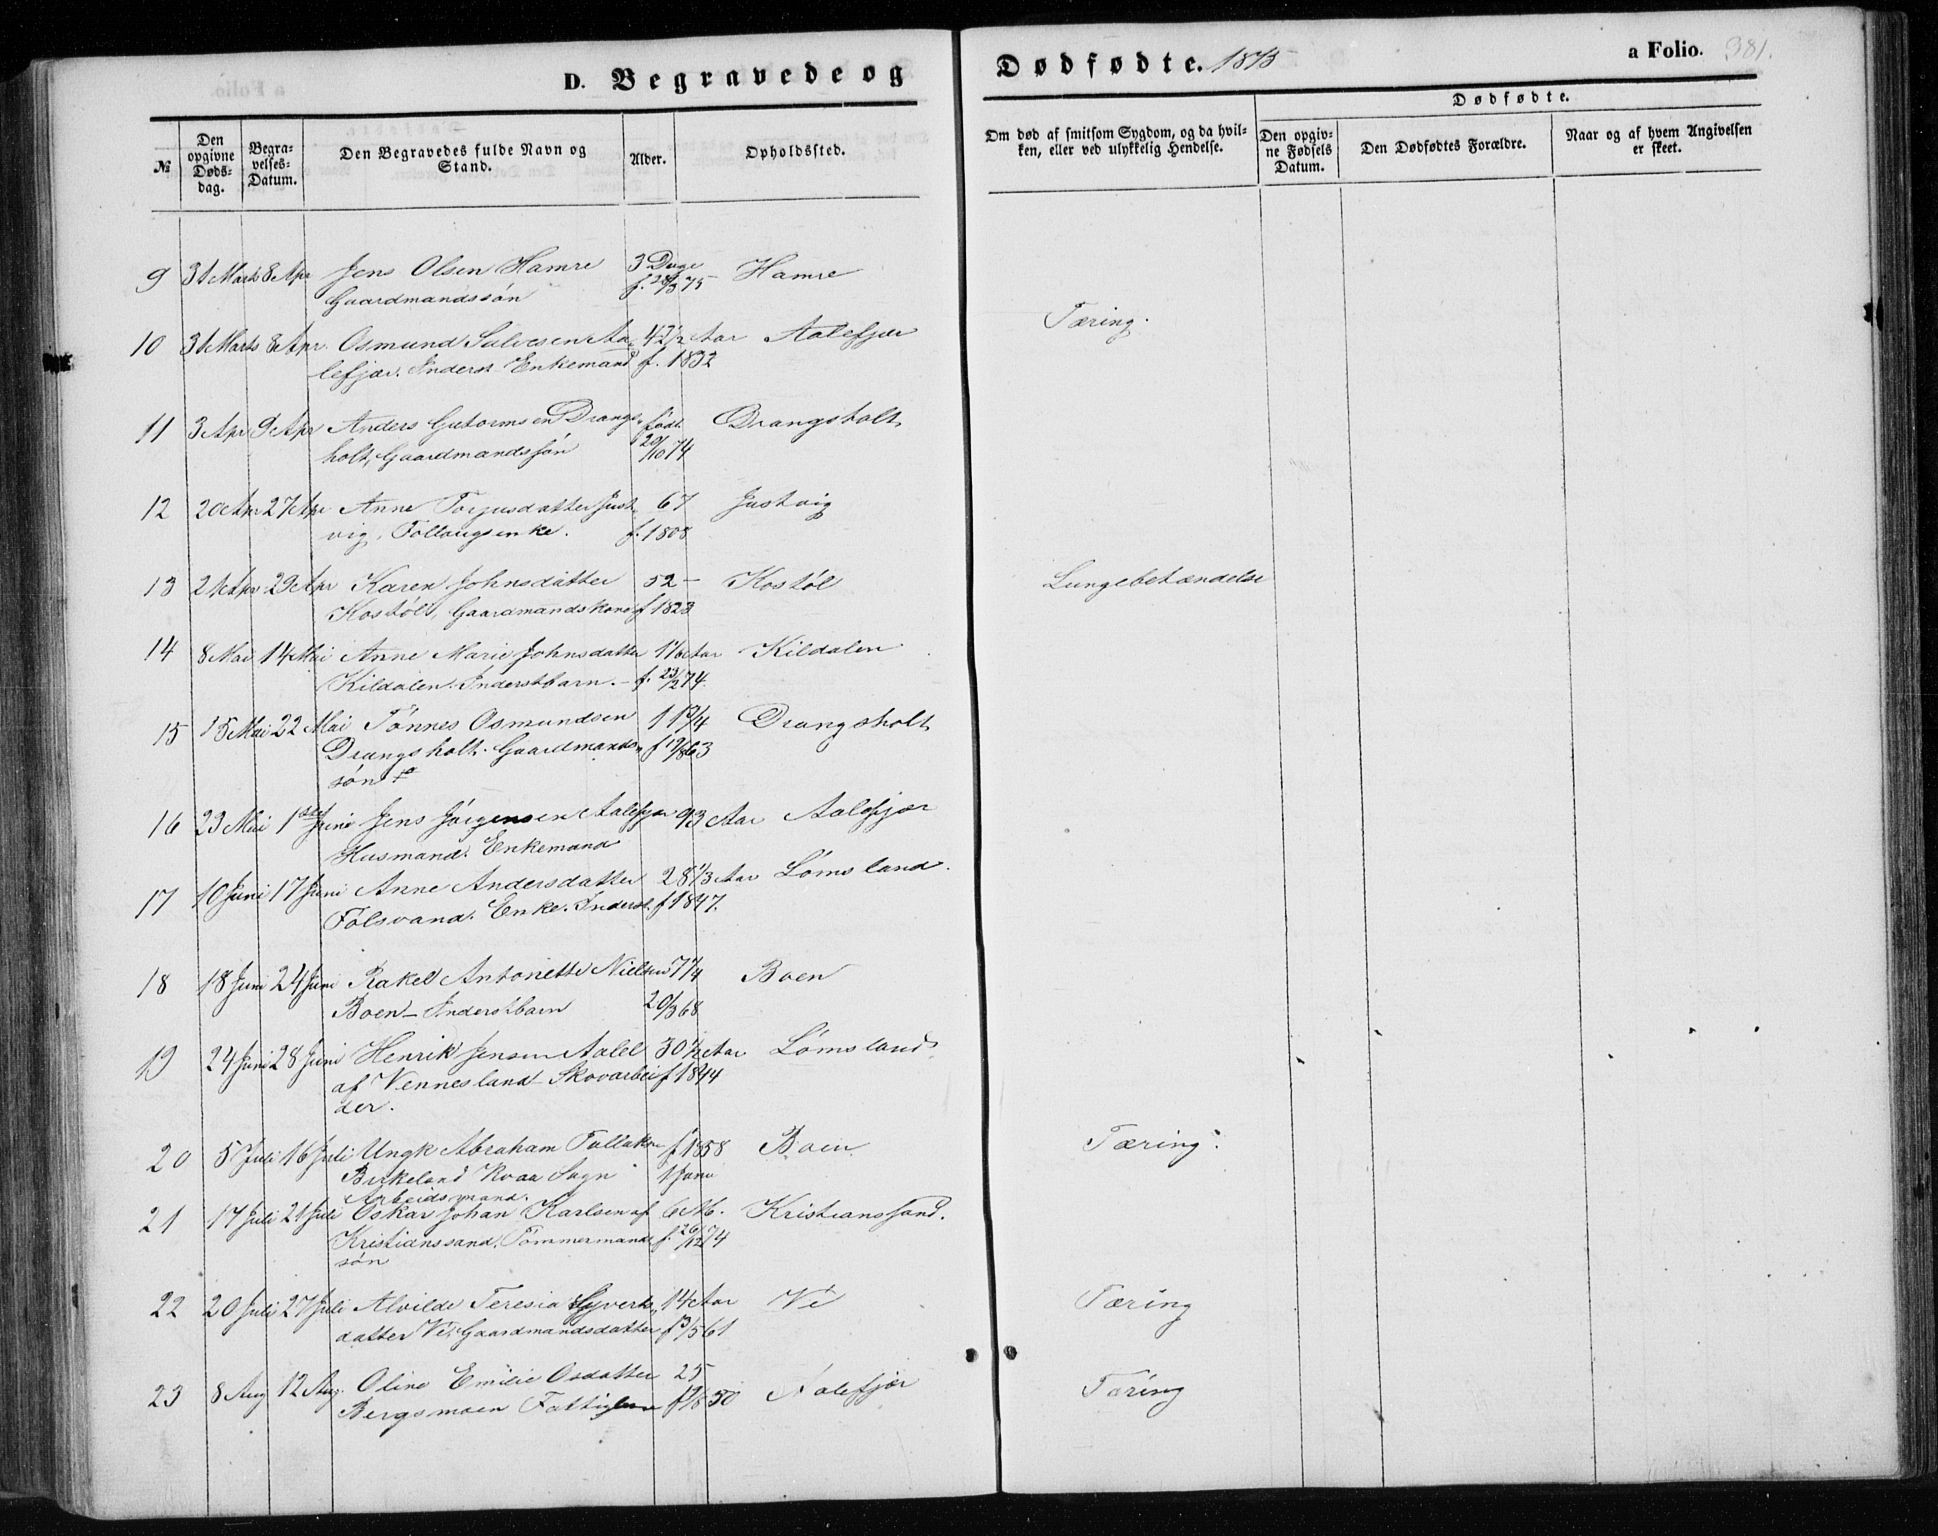 D. Begravede og Dødfødte. 1875 a Folio. 381.
№ Den opgivne Døds-dag. Begra-velses-Datum. Den Begravedes fulde Navn og Stand. Alder. Opholdssted. Om død af smitsom Sygdom, og da hvil-ken, eller ved ulykkelig Hendelse. Dødfødte. Den opgiv-ne Fødsels Datum. Den Dødfødtes Forældre. Naar og af hvem Angivelsen er skeet.
9 31 Marts 8 Apr Jens Olsen Hamre 3 Dage Hamre
Gaardmandssøn f. 28/3 75
10 31 Marts 8 Apr. Osmund Salvesen Aa- 42 1/2 Aar Aalefjær Tæring.
lefjær. Inderst Enkemand f. 1832
11 3 Apr 9 Apr Anders Gutormsen Drangs- født Drangsholt
holt, Gaardmandssøn 20/10 74
12 20 Apr 27 Apr Anne Torjusdatter Just- 67 Justvig
vig, Follougsenke. f. 1808
13 21 Apr 29 Apr Karen Johnsdatter 52 – Kostøl Lungebetændelse
Kostøl, Gaardmandskone f 1823
14 8 Mai 14 Mai Anne Marie Johnsdatter 1 1/6 Aar Kildalen
Kildalen. Inderstbarn. – f. 23/2 74.
15 15 Mai 22 Mai Tønnes Osmundsen 11 3/4 Drangsholt
Drangsholt. Gaardmands- f 19/8 63
søn
16 23 Mai 1ste Juni Jens Jørgensen Aalefjær 93 Aar Aalefjær
Husmand. Enkemand
17 10 Juni 17 Juni Anne Andersdatter 28 1/3 Aar Lømsland.
Fölsvand. Enke. Inderst. f 1847.
18 18 Juni 24 Juni Rakel Antonette Nielsen 7 1/4 Boen
Boen – Inderstbarn 20/3 68
19 24 Juni 28 Juni Henrik Jensen Aalel 30 1/2 Aar Lømsland
af Vennesland – Skovarbei- f 1844
der.
20 5 Juli 16 Juli Ungk Abraham Tallaksen f 1858 Boen Tæring.
Birkeland Kvaa Sogn 1 Janu
Arbeidsmand.
21 17 Juli 21 Juli Oskar Johan Karlsen af 6 M. Kristianssand.
Kristianssand. Tømmermands f. 26/12 74
søn
22 20 Juli 27 Juli Alvilde Teresia Syverts- 14 Aar Ve Tæring
datter Ve. Gaardmandsdatter f 3/5 61
23 8 Aug 12 Aug. Oline Emilie Osdatter 25 Aalefjær Tæring
Bergsmoen Fattiglem f 1/8 50